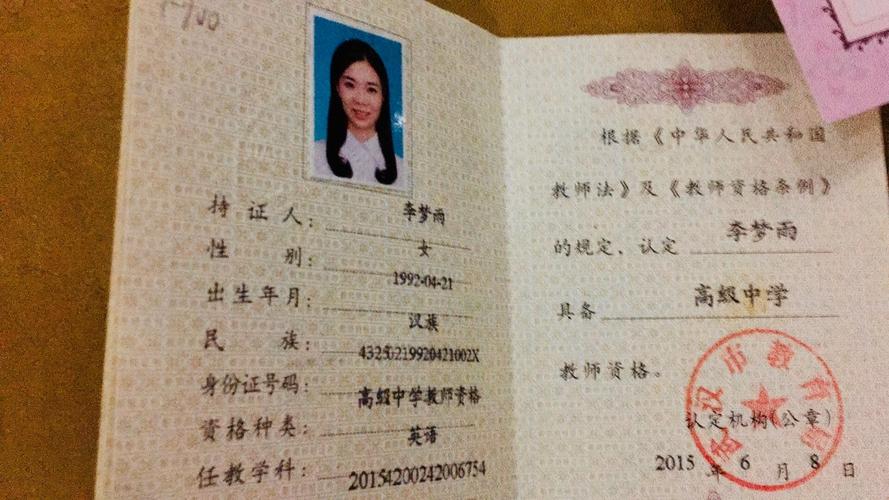 持 证 人： 李梦雨
性 别： 女
出生年月： 1992-04-21
民 族： 汉族
身份证号码： 43250219920421002X
资格种类： 高级中学教师资格
任教学科： 英语
20154200242006754
根据《中华人民共和国
教师法》及《教师资格条例》
的规定，认定 李梦雨
具备 高级中学
教师资格。
汉市教育局
认定机构（公章）
2015 年 6 月 8 日